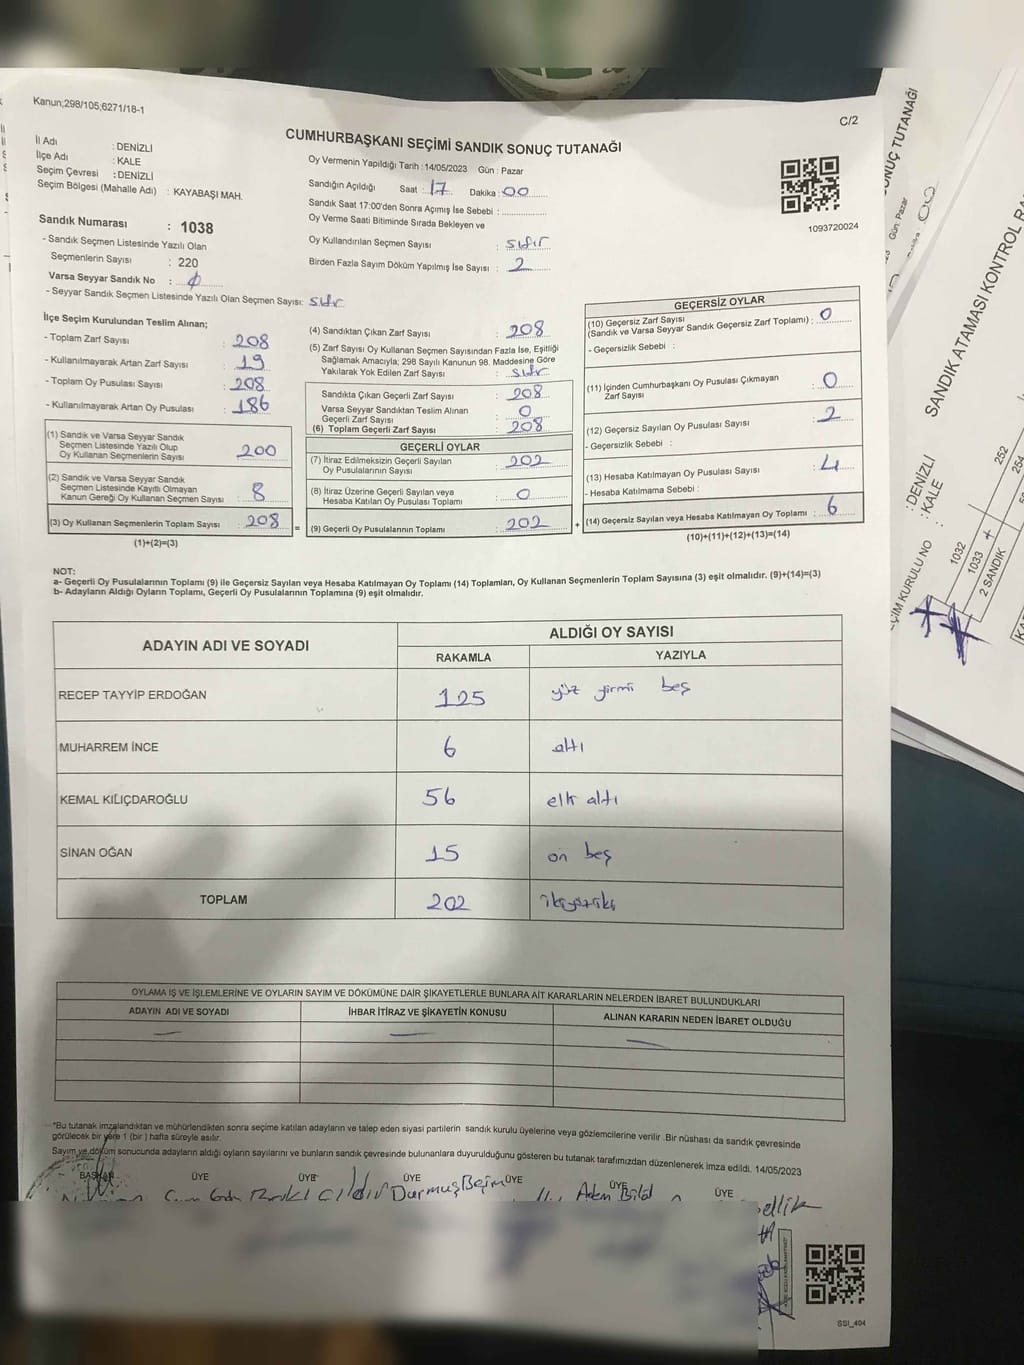 Kanun;298/105;6271/18-1
C/2
CUMHURBAŞKANI SEÇİMİ SANDIK SONUÇ TUTANAĞI
İl Adı : DENİZLİ
İlçe Adı : KALE
Seçim Çevresi : DENİZLİ
Seçim Bölgesi (Mahalle Adı) : KAYABAŞI MAH.
Oy Vermenin Yapıldığı Tarih : 14/05/2023 Gün : Pazar
Sandığın Açıldığı Saat : 17 Dakika : 00
Sandık Saat 17:00'den Sonra Açımış İse Sebebi :
Oy Verme Saati Bitiminde Sırada Bekleyen ve
Oy Kullandırılan Seçmen Sayısı : sıfır
Birden Fazla Sayım Döküm Yapılmış İse Sayısı : 2
1093720024
Sandık Numarası : 1038
- Sandık Seçmen Listesinde Yazılı Olan
Seçmenlerin Sayısı : 220
Varsa Seyyar Sandık No :
- Seyyar Sandık Seçmen Listesinde Yazılı Olan Seçmen Sayısı: sıfır
İlçe Seçim Kurulundan Teslim Alınan;
- Toplam Zarf Sayısı : 208
- Kullanılmayarak Artan Zarf Sayısı : 19
- Toplam Oy Pusulası Sayısı : 208
- Kullanılmayarak Artan Oy Pusulası : 186
(1) Sandık ve Varsa Seyyar Sandık
Seçmen Listesinde Yazılı Olup
Oy Kullanan Seçmenlerin Sayısı : 200
(2) Sandık ve Varsa Seyyar Sandık
Seçmen Listesinde Kayıtlı Olmayan
Kanun Gereği Oy Kullanan Seçmen Sayısı : 8
(3) Oy Kullanan Seçmenlerin Toplam Sayısı : 208
(1)+(2)=(3)
(4) Sandıktan Çıkan Zarf Sayısı : 208
(5) Zarf Sayısı Oy Kullanan Seçmen Sayısından Fazla İse, Eşitliği
Sağlamak Amacıyla; 298 Sayılı Kanunun 98. Maddesine Göre
Yakılarak Yok Edilen Zarf Sayısı : sıfır
Sandıkta Çıkan Geçerli Zarf Sayısı : 208
Varsa Seyyar Sandıktan Teslim Alınan
Geçerli Zarf Sayısı : 0
(6) Toplam Geçerli Zarf Sayısı : 208
GEÇERLİ OYLAR
(7) İtiraz Edilmeksizin Geçerli Sayılan
Oy Pusulalarının Sayısı : 202
(8) İtiraz Üzerine Geçerli Sayılan veya
Hesaba Katılan Oy Pusulası Toplamı : 0
= (9) Geçerli Oy Pusulalarının Toplamı : 202 +
GEÇERSİZ OYLAR
(10) Geçersiz Zarf Sayısı
(Sandık ve Varsa Seyyar Sandık Geçersiz Zarf Toplamı) : 0
- Geçersizlik Sebebi :
(11) İçinden Cumhurbaşkanı Oy Pusulası Çıkmayan
Zarf Sayısı : 0
(12) Geçersiz Sayılan Oy Pusulası Sayısı : 2
- Geçersizlik Sebebi :
(13) Hesaba Katılmayan Oy Pusulası Sayısı : 4
- Hesaba Katılmama Sebebi :
(14) Geçersiz Sayılan veya Hesaba Katılmayan Oy Toplamı : 6
(10)+(11)+(12)+(13)=(14)
NOT:
a- Geçerli Oy Pusulalarının Toplamı (9) ile Geçersiz Sayılan veya Hesaba Katılmayan Oy Toplamı (14) Toplamları, Oy Kullanan Seçmenlerin Toplam Sayısına (3) eşit olmalıdır. (9)+(14)=(3)
b- Adayların Aldığı Oyların Toplamı, Geçerli Oy Pusulalarının Toplamına (9) eşit olmalıdır.
ADAYIN ADI VE SOYADI
ALDIĞI OY SAYISI
RAKAMLA YAZIYLA
RECEP TAYYİP ERDOĞAN 125 yüz yirmi beş
MUHARREM İNCE 6 altı
KEMAL KILIÇDAROĞLU 56 elli altı
SİNAN OĞAN 15 on beş
TOPLAM 202 ikiyüziki
OYLAMA İŞ VE İŞLEMLERİNE VE OYLARIN SAYIM VE DÖKÜMÜNE DAİR ŞİKAYETLERLE BUNLARA AİT KARARLARIN NELERDEN İBARET BULUNDUKLARI
ADAYIN ADI VE SOYADI İHBAR İTİRAZ VE ŞİKAYETİN KONUSU ALINAN KARARIN NEDEN İBARET OLDUĞU
*Bu tutanak imzalandıktan ve mühürlendikten sonra seçime katılan adayların ve talep eden siyasi partilerin sandık kurulu üyelerine veya gözlemcilerine verilir .Bir nüshası da sandık çevresinde
görülecek bir yere 1 (bir) hafta süreyle asılır.
Sayım ve döküm sonucunda adayların aldığı oyların sayılarını ve bunların sandık çevresinde bulunanlara duyurulduğunu gösteren bu tutanak tarafımızdan düzenlenerek imza edildi. 14/05/2023
BAŞKAN ÜYE ÜYE ÜYE ÜYE ÜYE ÜYE
Durmuş Adem
SSI_404
ONUÇ TUTANAĞI
Gün: Pazar
00
SANDIK ATAMASI KONTROL
: DENİZLİ
: KALE
ÇİM KURULU NO :
1032 252
1033 254
2 SANDIK